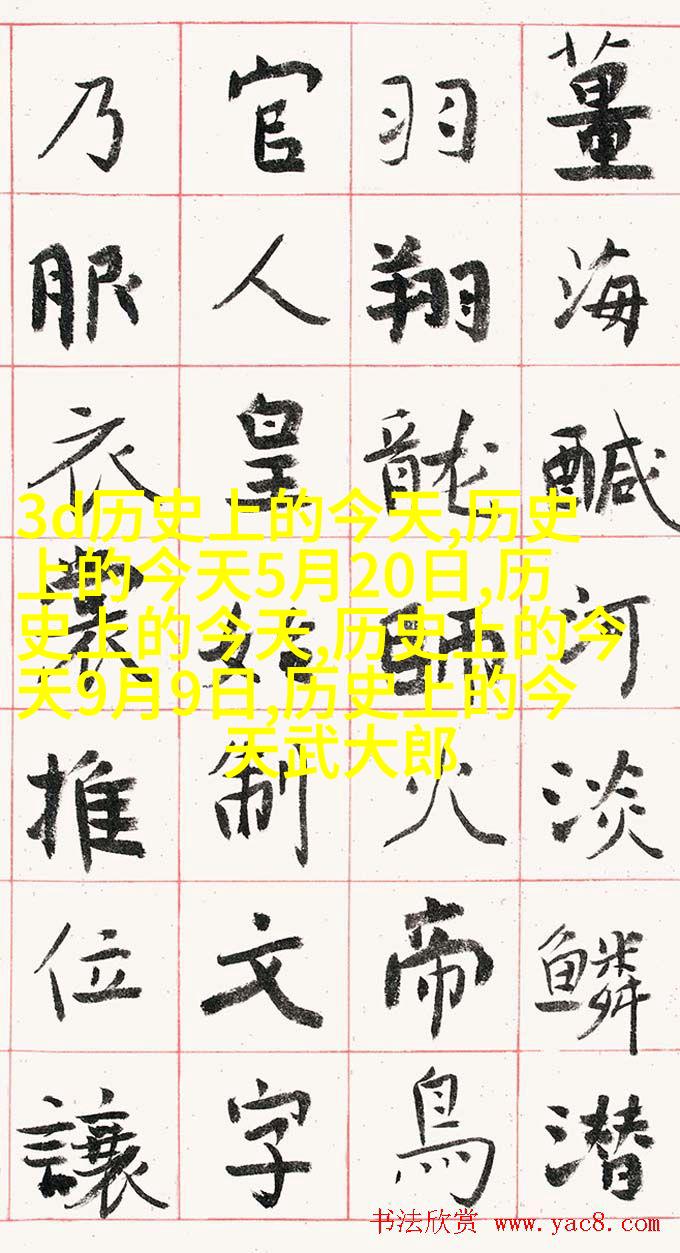 薑海醎河淡鱗潛
羽翔龍師火帝鳥
官人皇始制文字
乃服衣裳推位讓
3d历史上的今天,历史
上的今天5月20日,历
史上的今天,历史上的今
天9月9日,历史上的今
天武大郎
书法欣赏 www.yac8.com